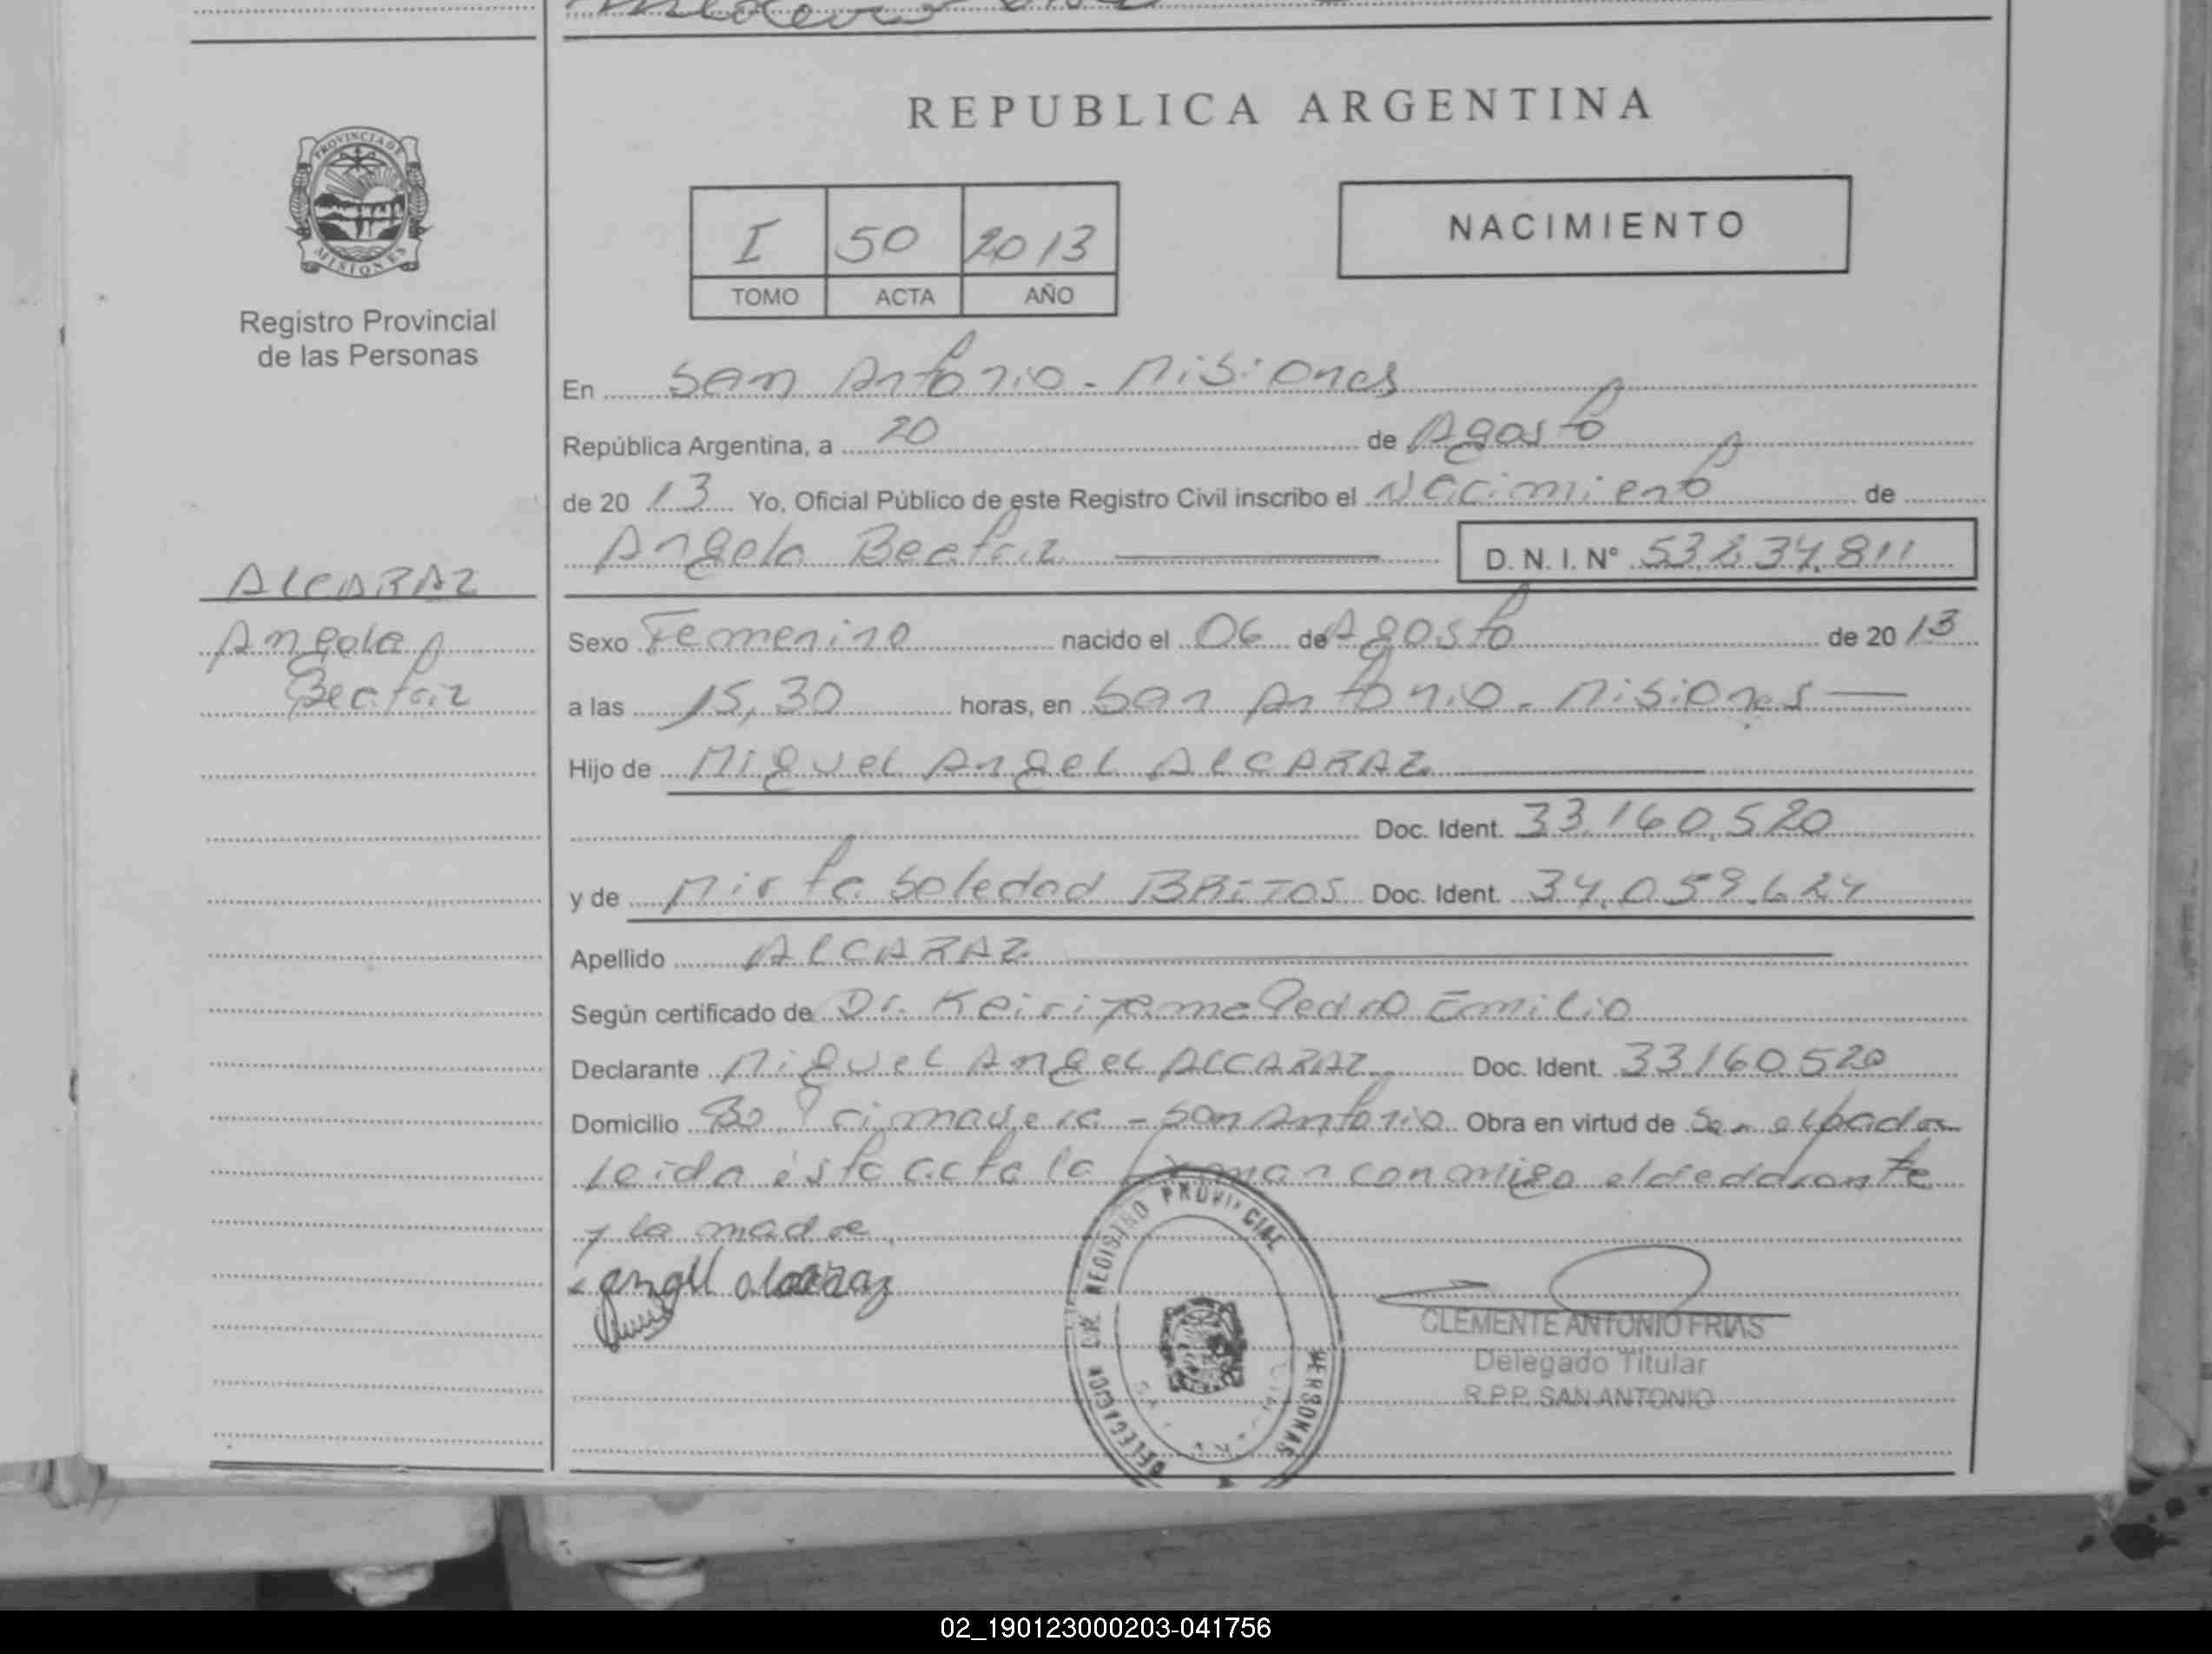 REPUBLICA ARGENTINA
PROVINCIA DE
MISIONES
Registro Provincial
de las Personas
I 50 2013
TOMO ACTA AÑO
NACIMIENTO
En San Antonio - Misiones
República Argentina, a 20 de Agosto
de 20 13 Yo, Oficial Público de este Registro Civil inscribo el Nacimiento de
Angela Beatriz D. N. I. N°
ALCARAZ
Angela
Beatriz
Sexo Femenino nacido el 06 de Agosto de 20 13
a las 15,30 horas, en San Antonio - Misiones
Hijo de Miguel Angel ALCARAZ
Doc. Ident. 33.160.520
y de Mirta Soledad BRITOS Doc. Ident. 34.059.624
Apellido ALCARAZ
Según certificado de Dr. Pedro Emilio
Declarante Miguel Angel ALCARAZ Doc. Ident. 33160520
Domicilio Bo Primavera - San Antonio Obra en virtud de
Leida ésta acta la firman conmigo el declarante
y la madre
angel alcaraz
DELEGACION REGISTRO PROVINCIAL PERSONAS
CLEMENTE ANTONIO FRIAS
Delegado Titular
R.P.P. SAN ANTONIO
02_190123000203-041756